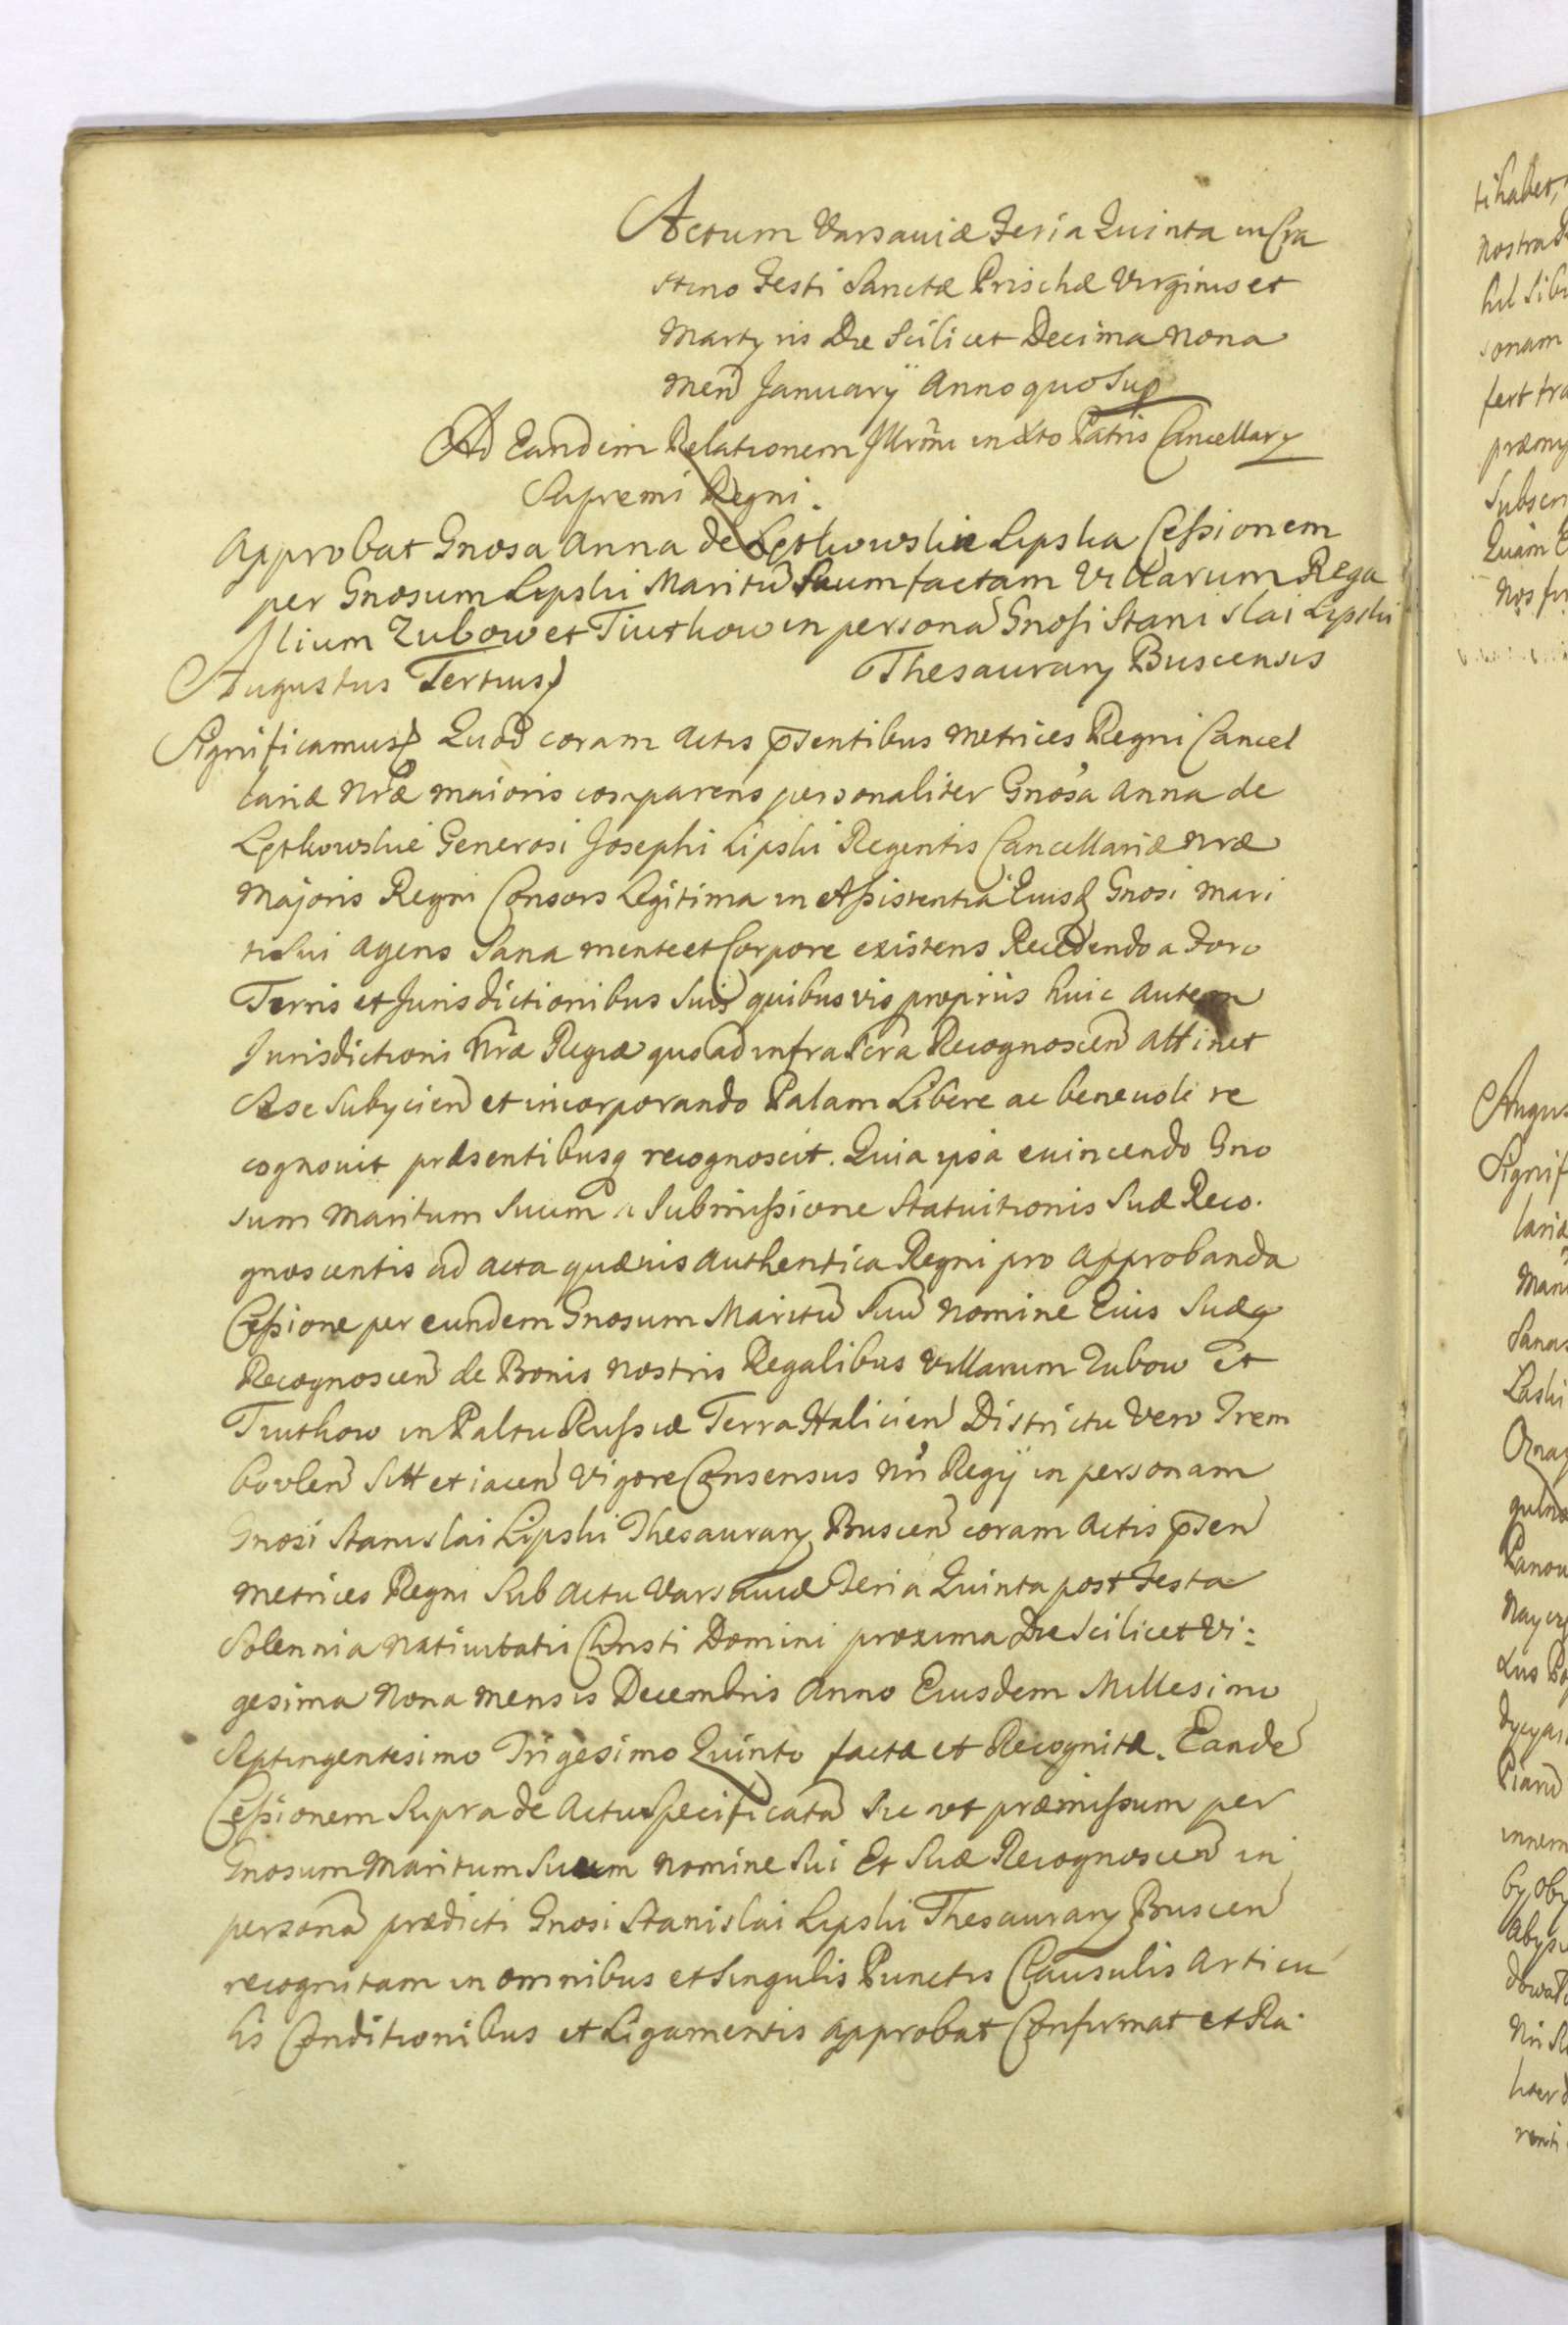 Actum Varsaviæ Feria Quinta in Cra
stino Festi Sanctæ Prischæ Virginis et
Martyris Die Scilicet Decima Nona
Men January Anno quo Sup
Ad Eandem Relationem Illrmi in Xto Patris Cancellary
Supremi Regni.
Approbat Gnosa Anna de Lętkowskie Lipska Cessionem
per Gnosum Lipski Maritu Suum factam Villarum Rega
lium Zubow et Tiutkow in persona Gnosi Stanislai Lipski
Thesaurary Buscensis
Augustus Tertius
Significamus Quod coram Actis psentibus Metrices Regni Cancel
lariæ Nræ maioris comparens personaliter Gnosa Anna de
Lętkowskie Generosi Josephi Lipski Regentis Cancellariæ Nræ
Majoris Regni Consors Legitima in Assistentia Eiusd Gnosi Mari
ti Sui Agens Sana mente et Corpore existens Recedendo a Foro
Terris et Jurisdictionibus Suis quibusvis propriis huic autem
Jurisdictioni Nræ Regiæ quo ad infra Scra Recognoscen attinet
Sese Subycien et incorporando Palam Libere ac benevole re
cognovit præsentibusq recognoscit. Quia ipsa evincendo Gno
sum Maritum Suum a Submissione Statuitionis Suæ Reco.
gnoscentis ad acta quævis Authentica Regni pro Approbanda
Cessione per eundem Gnosum Maritu Suu Nomine Eius Suæq
Recognoscen de Bonis Nostris Regalibus Villarum Zubow Et
Tiutkow in Paltu Russiæ Terra Halicien Districtu Vero Trem
bovlen Sitt et iacen Vigore Consensus Nri Regij in personam
Gnosi Stanislai Lipski Thesaurary Buscen coram Actis psen
Metrices Regni Sub Actu Varsaviæ Feria Quinta post Festa
Solennia Nativitatis Christi Domini proxima Die Scilicet Vi:
gesima Nona Mensis Decembris Anno Eiusdem Millesimo
Septingentesimo Trigesimo Quinto factæ et Recognitæ. Eande
Cessionem Supra de Actu Specificata Sic ut præmissum per
Gnosum Maritum Suum Nomine Sui Et Suæ Recognoscen in
persona prædicti Gnosi Stanislai Lipski Thesaurary Buscen
recognitam in omnibus et Singulis Punctis Clausulis Articu
lis Conditionibus et Ligamentis approbat Confirmat et Ra.